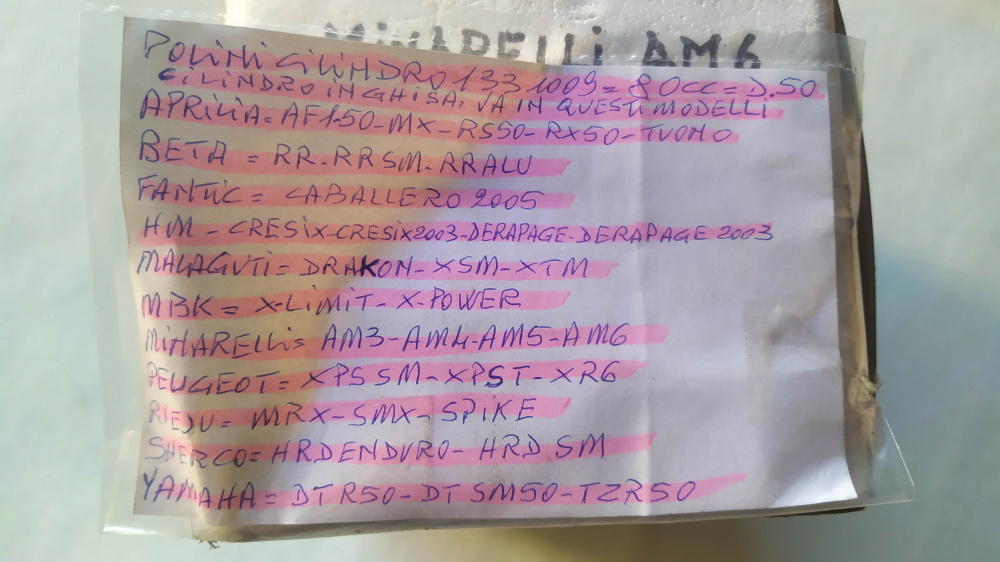 MINARELLI AM6
POLINI CILINDRO 133 1009 = 80CC = D.50
CILINDRO IN GHISA: VA IN QUESTI MODELLI
APRILIA = AF1-50-MX-RS50-RX50-TUONO
BETA = RR-RRSM-RRALU
FANTIC = CABALLERO 2005
HM - CRESIX-CRESIX2003-DERAPAGE-DERAPAGE 2003
MALAGUTI = DRAKON-XSM-XTM
MBK = X-LIMIT-X-POWER
MINARELLI = AM3-AM4-AM5-AM6
PEUGEOT = XPSSM-XPST-XR6
RIEJU = MRX-SMX-SPIKE
SHERCO = HRDENDURO-HRD SM
YAMAHA = DTR50-DT SM50-TZR50